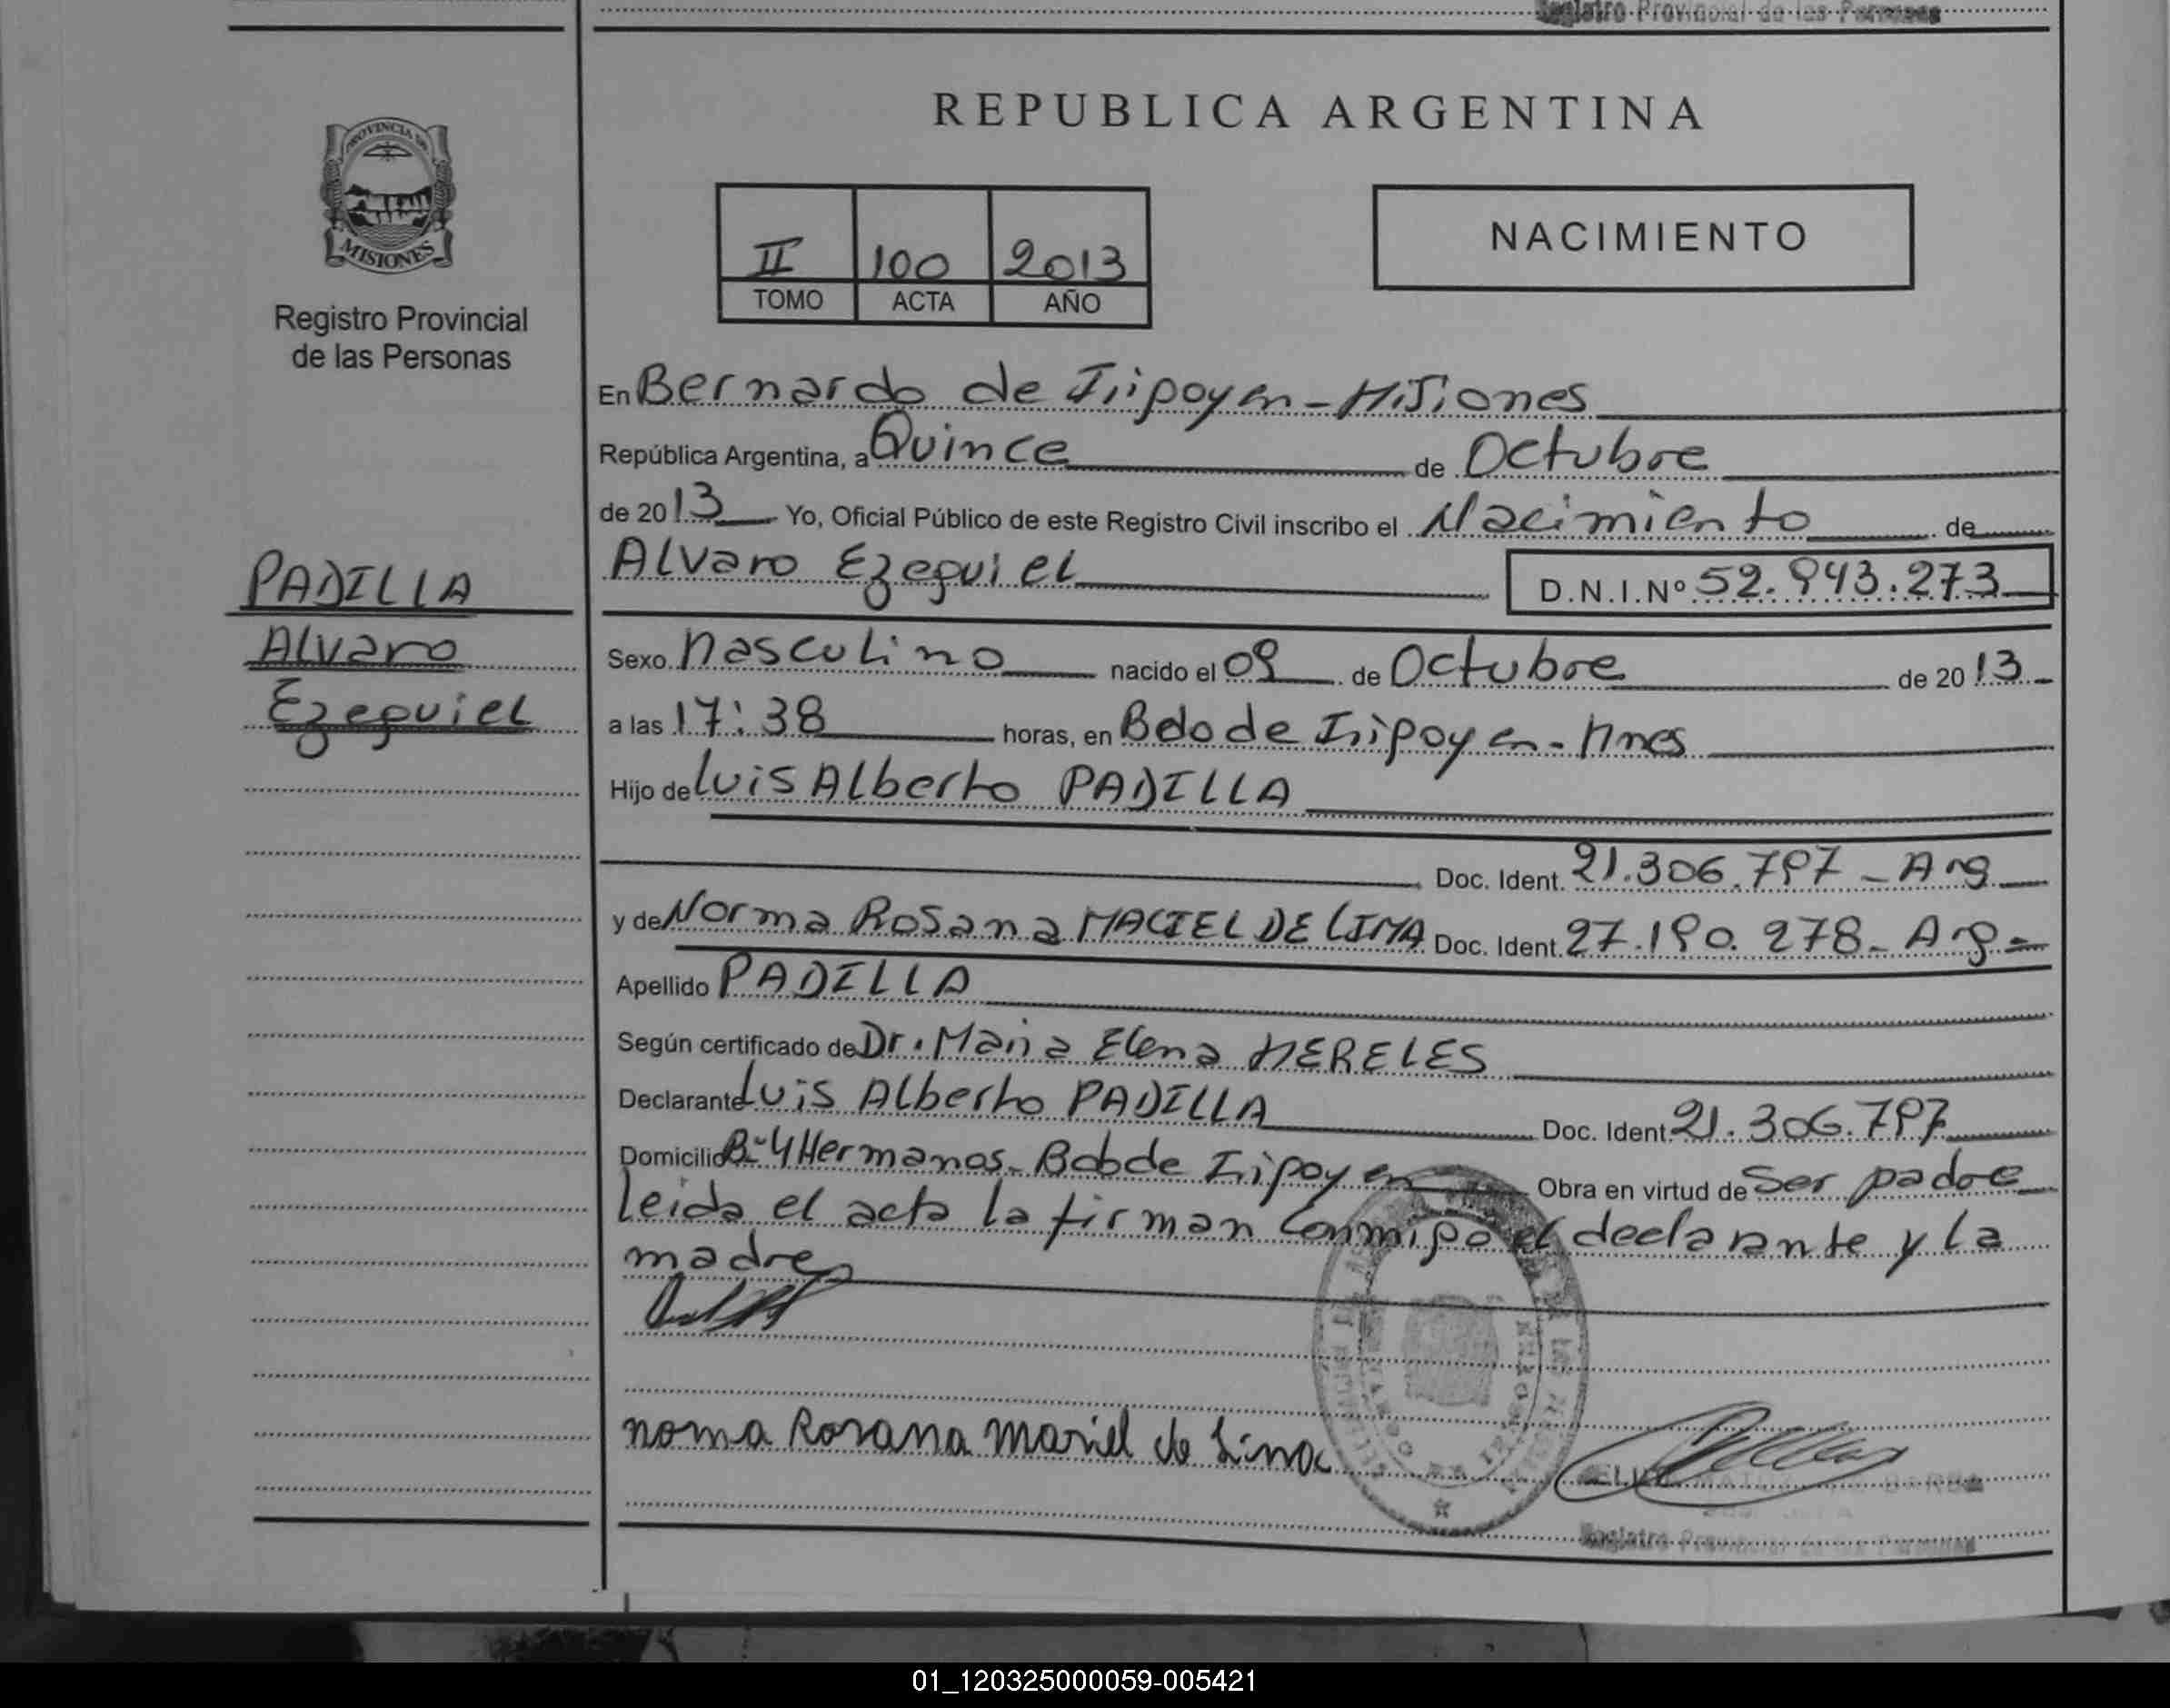 Registro Provincial de las Personas
REPUBLICA ARGENTINA
PROVINCIA DE
MISIONES
Registro Provincial
de las Personas
II 100 2013
TOMO ACTA AÑO
NACIMIENTO
En Bernardo de Irigoyen - Misiones
República Argentina, a Quince de Octubre
de 2013 Yo, Oficial Público de este Registro Civil inscribo el Nacimiento de
Alvaro Ezequiel D.N.I.Nº 52.943.273
PADILLA
Alvaro
Ezequiel
Sexo Masculino nacido el 09 de Octubre de 2013
a las 17:38 horas, en Bdo de Irigoyen - Mnes
Hijo de Luis Alberto PADILLA
Doc. Ident. 21.306.797 - Arg
y de Norma Rosana MACIEL DE LIMA Doc. Ident. 27.190.278 - Arg -
Apellido PADILLA
Según certificado de Dr. Maria Elena MERELES
Declarante Luis Alberto PADILLA Doc. Ident. 21.306.797
Domicilio Bº 4 Hermanos - Bdo de Irigoyen Obra en virtud de Ser padre
Leida el acta la firman conmigo el declarante y la
madre
noma Rosana Maciel de Lima
Registro Provincial de las Personas
01_120325000059-005421